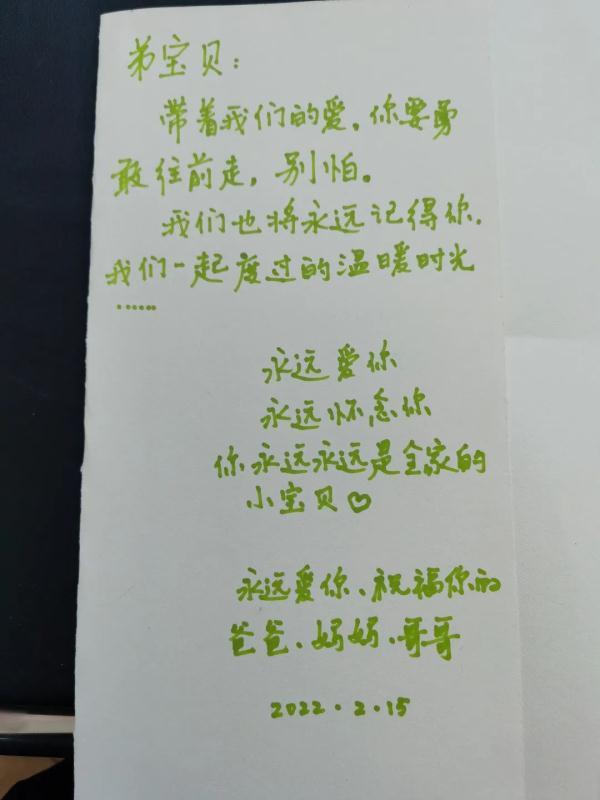 弟宝贝：
带着我们的爱，你要勇
敢往前走，别怕。
我们也将永远记得你，
我们一起度过的温暖时光
……
永远爱你
永远怀念你
你永远永远是全家的
小宝贝♡
永远爱你、祝福你的
爸爸、妈妈、哥哥
2022.2.15